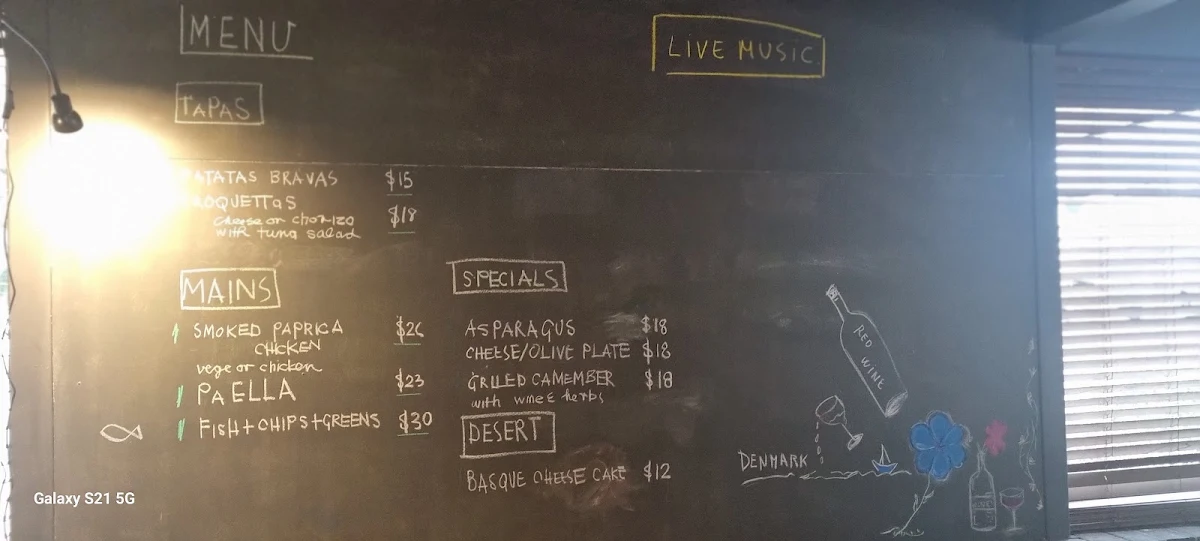 MENU
LIVE MUSIC
TAPAS
ATATAS BRAVAS $15
OQUETTaS $18
cheese or chorizo
with tuna salad
MAINS
SMOKED PAPRICA $26
CHICKEN
vege or chicken
PAELLA $23
FISH+CHIPS+GREENS $30
SPECIALS
ASPARAGUS $18
CHEESE/OLIVE PLATE $18
GRILLED CAMEMBER $18
with wine & herbs
DESERT
BASQUE CHEESE CAKE $12
RED WINE
DENMARK
Galaxy S21 5G